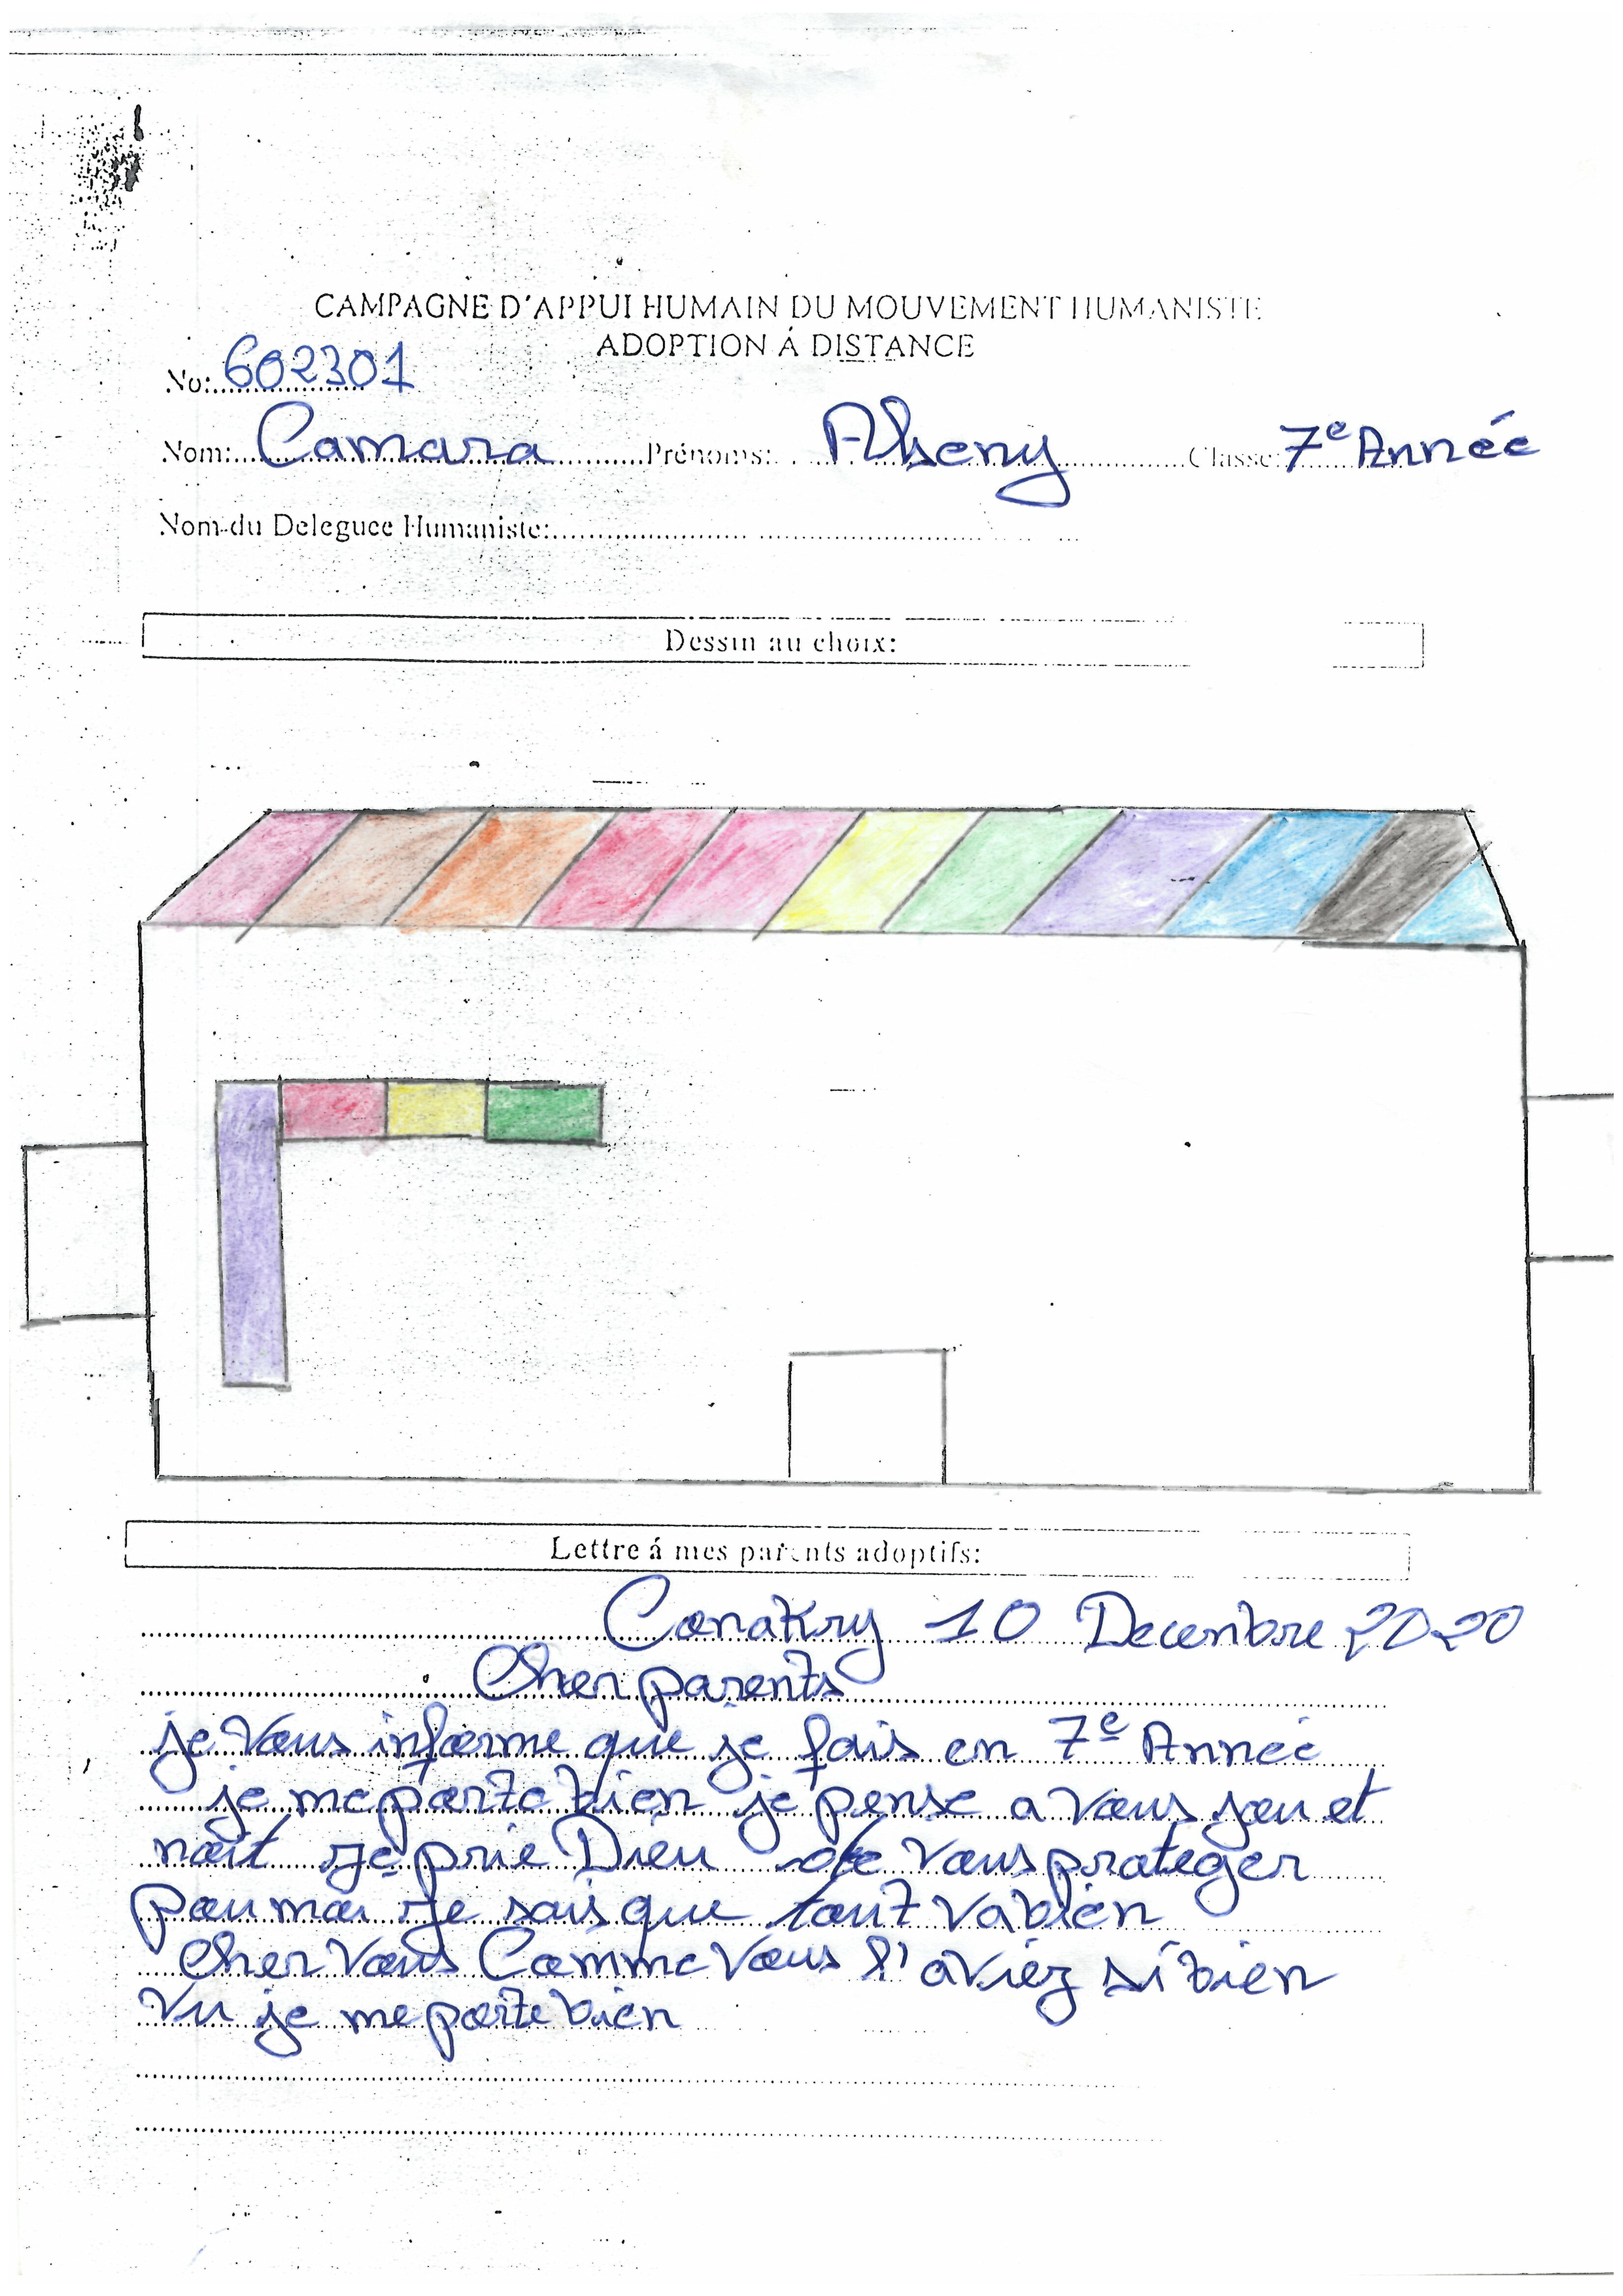 CAMPAGNE D'APPUI HUMAIN DU MOUVEMENT HUMANISTE
ADOPTION Á DISTANCE
No: 602301
Nom: Camara Prénoms: Alseny Classe: 7e Année
Nom du Deleguee Humaniste:
Dessin au choix:
Lettre á mes parents adoptifs:
Conakry 10 Decembre 2020
Cher parents
je vous informe que je fais en 7e Année
je me porte bien je pense a vous jou et
noit je prie Dieu de vous proteger
pou moi je sais que tout va bien
cher vous Comme vous l'aviez si bien
vu je me porte bien